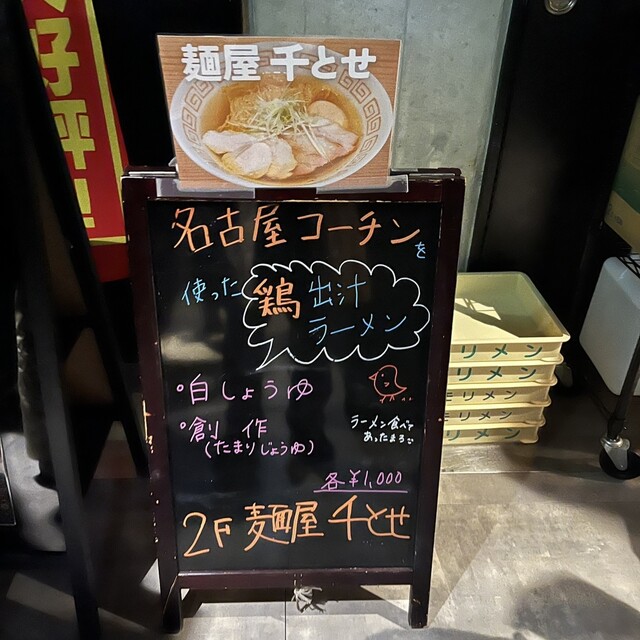 好評!!
麺屋 千とせ
名古屋コーチンを
使った 鶏 出汁
ラーメン
・白しょうゆ
・創作
(たまりじょうゆ)
ラーメン食べて
あったまろ
各¥1,000
2F 麺屋 千とせ
リメン
リメン
モリメン
モリメン